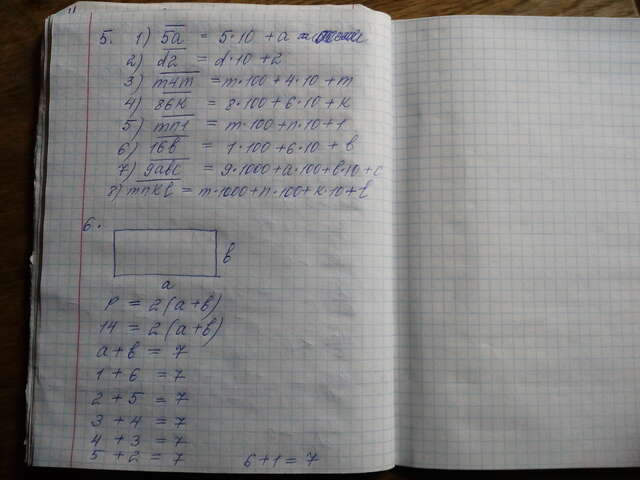 5. 1) 5a = 5·10 + a
2) d2 = d·10 + 2
3) m4m = m·100 + 4·10 + m
4) 86к = 8·100 + 6·10 + к
5) mn1 = m·100 + n·10 + 1
6) 16в = 1·100 + 6·10 + в
7) 9авс = 9·1000 + a·100 + в·10 + с
8) mnкl = m·1000 + n·100 + к·10 + l
6.
в
a
P = 2(a+в)
14 = 2(a+в)
a + в = 7
1 + 6 = 7
2 + 5 = 7
3 + 4 = 7
4 + 3 = 7
5 + 2 = 7 6 + 1 = 7